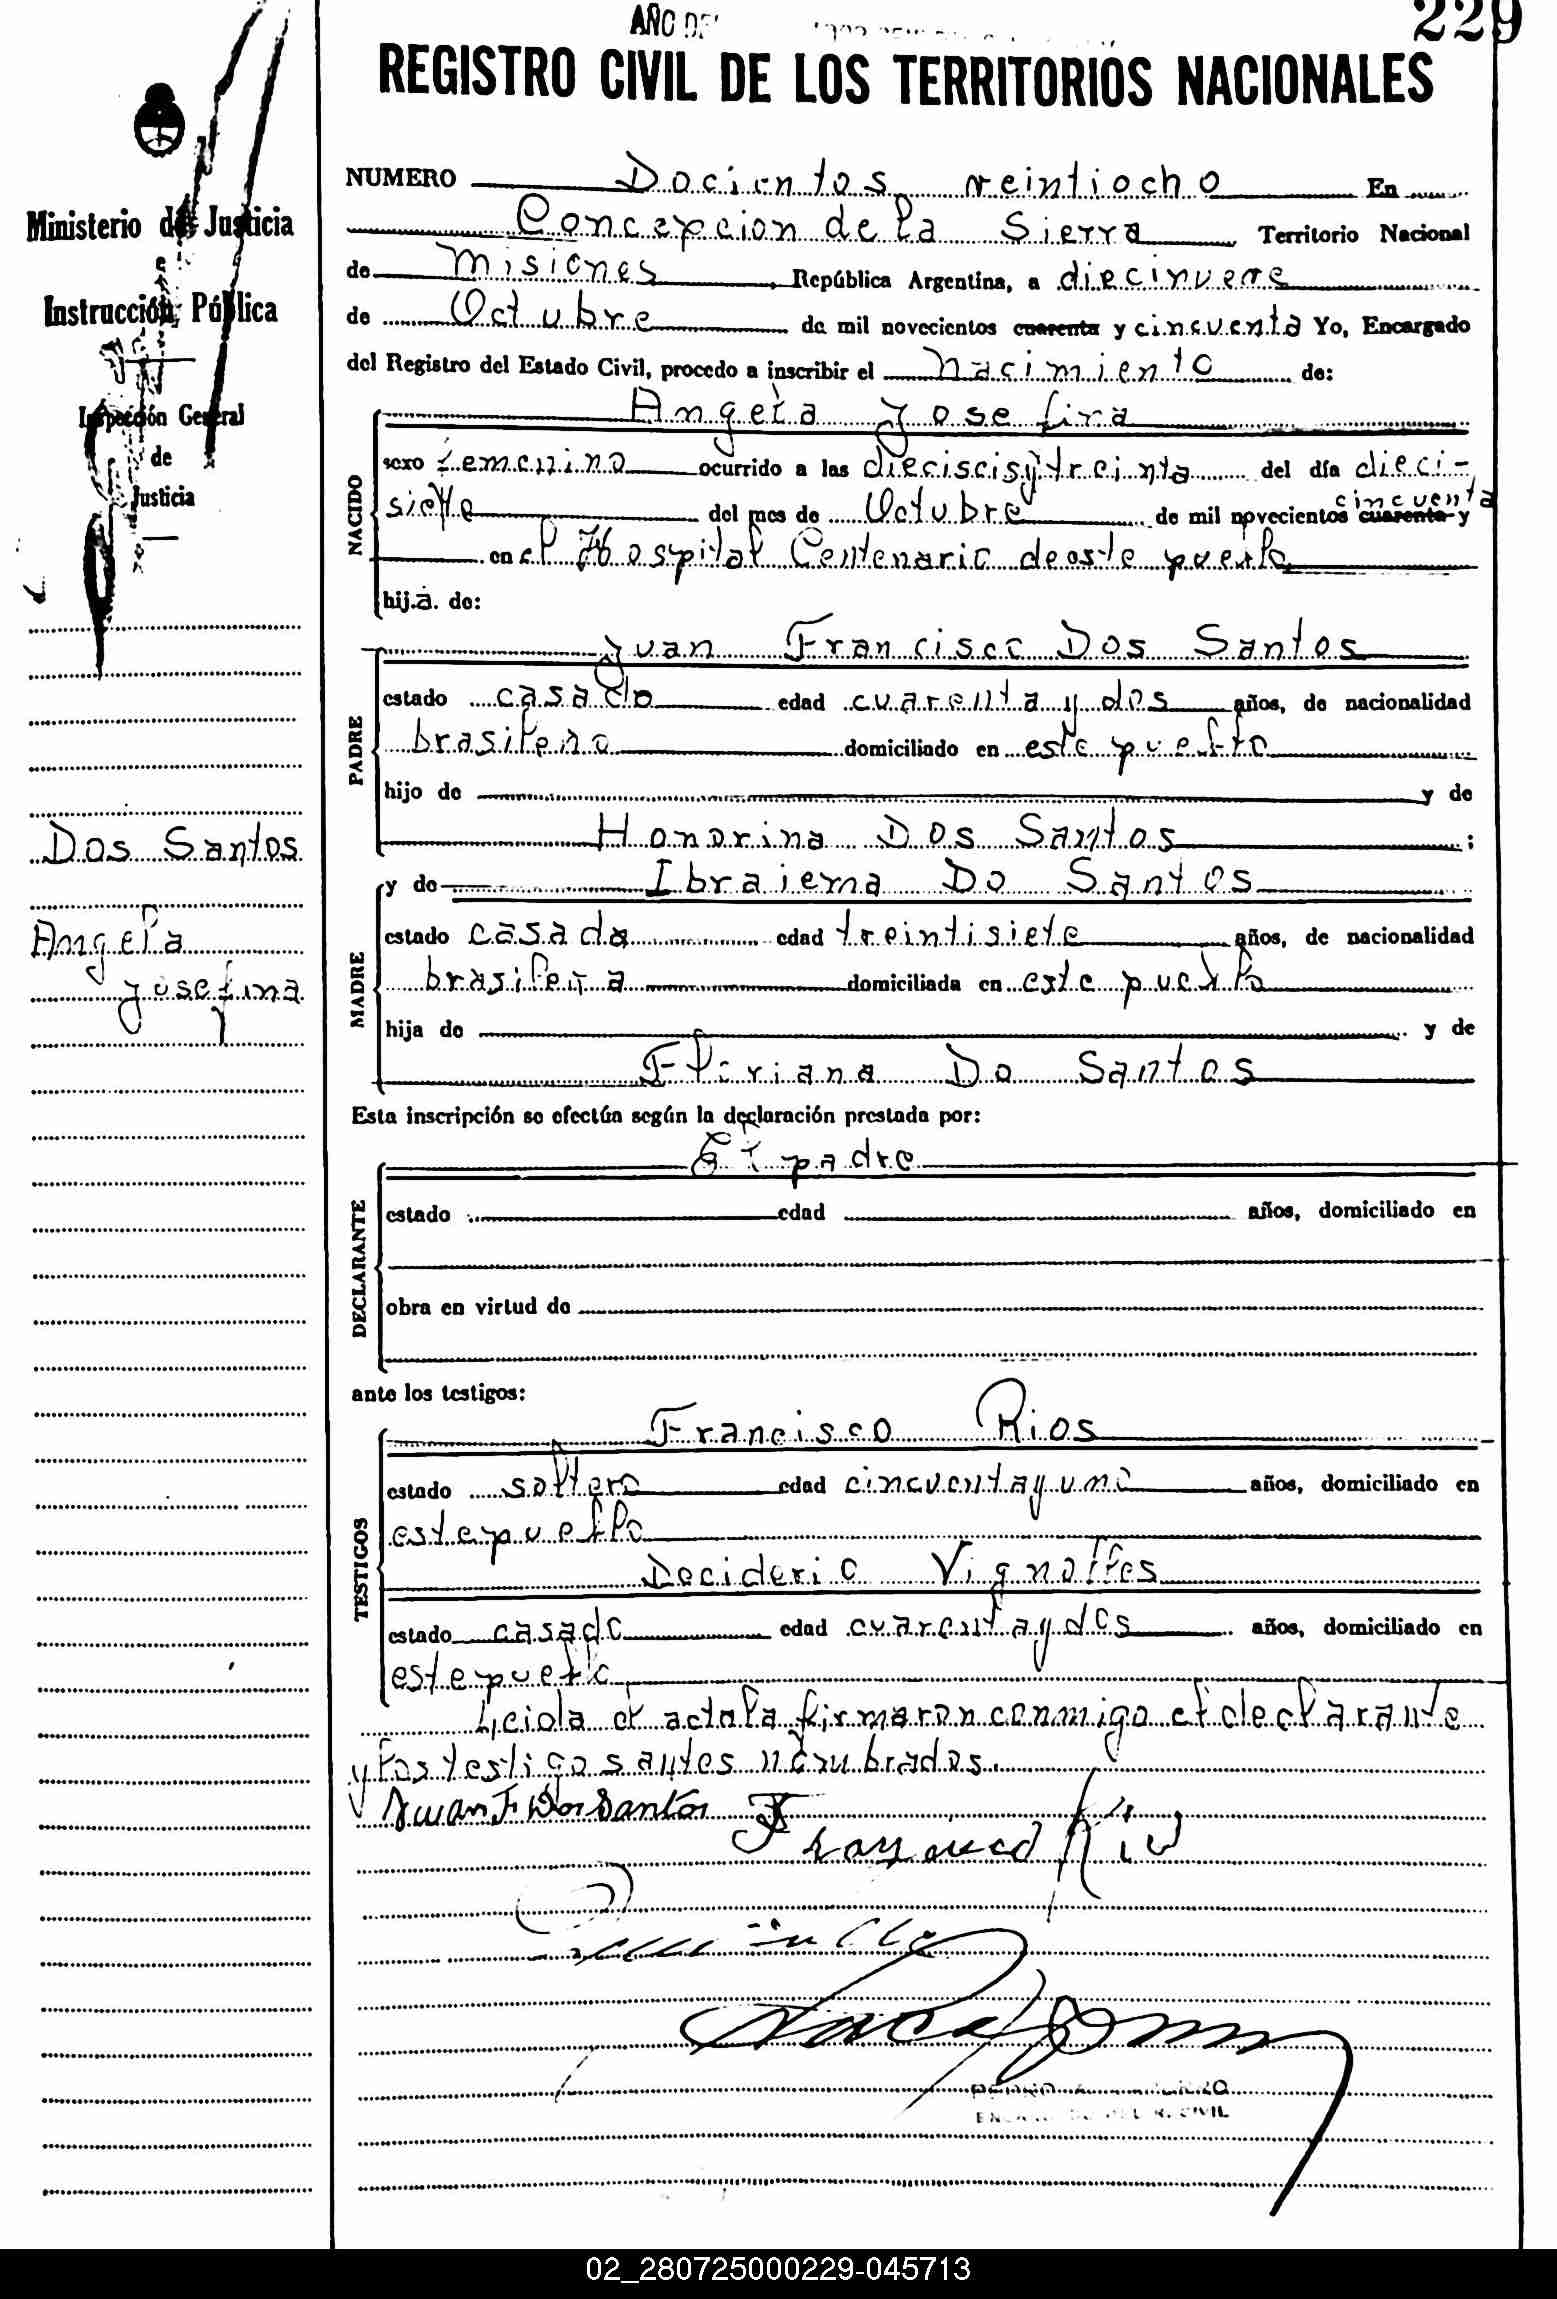 AÑO DEL
229
REGISTRO CIVIL DE LOS TERRITORIOS NACIONALES
Ministerio de Justicia
e
Instrucción Pública
Inspección General
de
Justicia
NUMERO Docientos veintiocho En
Concepcion de la Sierra Territorio Nacional
de Misiones, República Argentina, a diecinueve
de Octubre de mil novecientos cuarenta y cincuenta Yo, Encargado
del Registro del Estado Civil, procedo a inscribir el Nacimiento de:
NACIDO
Angela Josefina
sexo femenino ocurrido a las dieciseis y treinta del día dieci-
siete del mes de Octubre de mil novecientos cuarenta y cincuenta
en el Hospital Centenario de este pueblo
hija de:
PADRE
Juan Francisco Dos Santos
estado casado edad cuarenta y dos años, de nacionalidad
brasileño domiciliado en este pueblo
hijo de y de
Honorina Dos Santos ;
Dos Santos
Angela
Josefina
MADRE
y de Ibraiema Do Santos
estado casada edad treintisiete años, de nacionalidad
brasileña domiciliada en este pueblo
hija de y de
Floriana Do Santos
Esta inscripción se efectúa según la declaración prestada por:
DECLARANTE
El padre
estado edad años, domiciliado en
obra en virtud de
ante los testigos:
TESTIGOS
Francisco Rios
estado soltero edad cincuenta y uno años, domiciliado en
este pueblo
Deciderio Vignolles
estado casado edad cuarenta y dos años, domiciliado en
este pueblo
Leida el acta la firmaron conmigo el declarante
y los testigos antes nombrados.
Juan F. Dos Santos
Francisco Rios
PEDRO A.
ENCARGADO DEL R. CIVIL
02_280725000229-045713